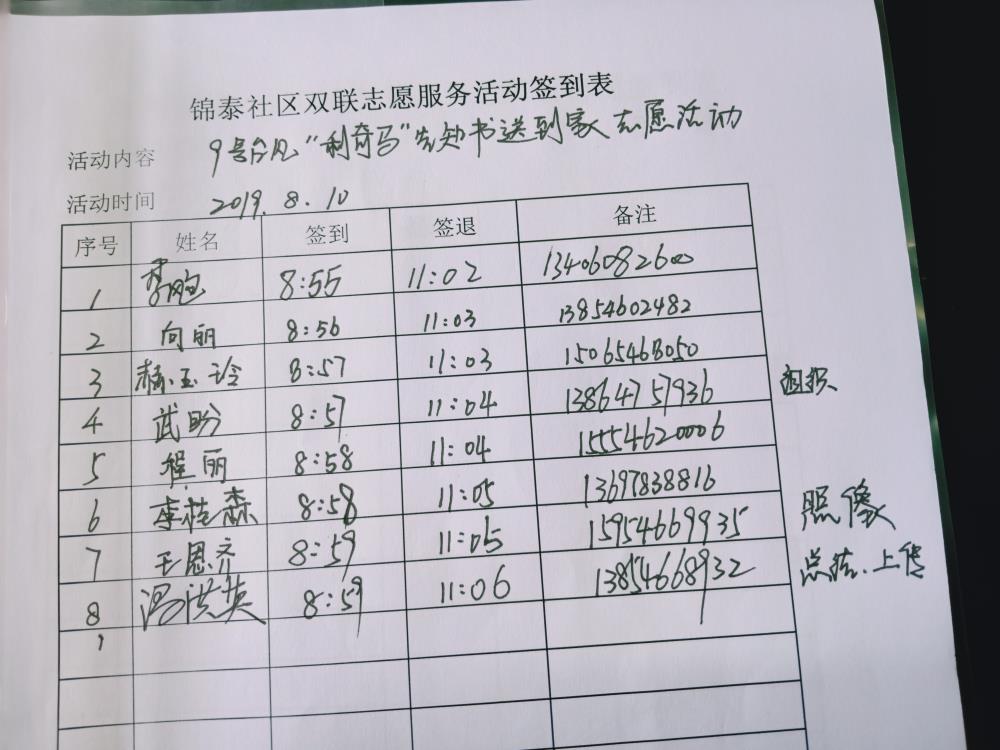 锦泰社区双联志愿服务活动签到表
活动内容 9号台风"利奇马"告知书送到家志愿活动
活动时间 2019.8.10
序号 姓名 签到 签退 备注
1 李鹏 8:55 11:02 13406082600
2 向丽 8:56 11:03 13854602482
3 杨玉玲 8:57 11:03 15065463050
4 武盼 8:57 11:04 13864757936 组织
5 程丽 8:58 11:04 15554620006
6 李桂森 8:58 11:05 13697838816
7 王恩齐 8:59 11:05 15954669935 照像
8 冯洪英 8:59 11:06 13854668932 总结、上传